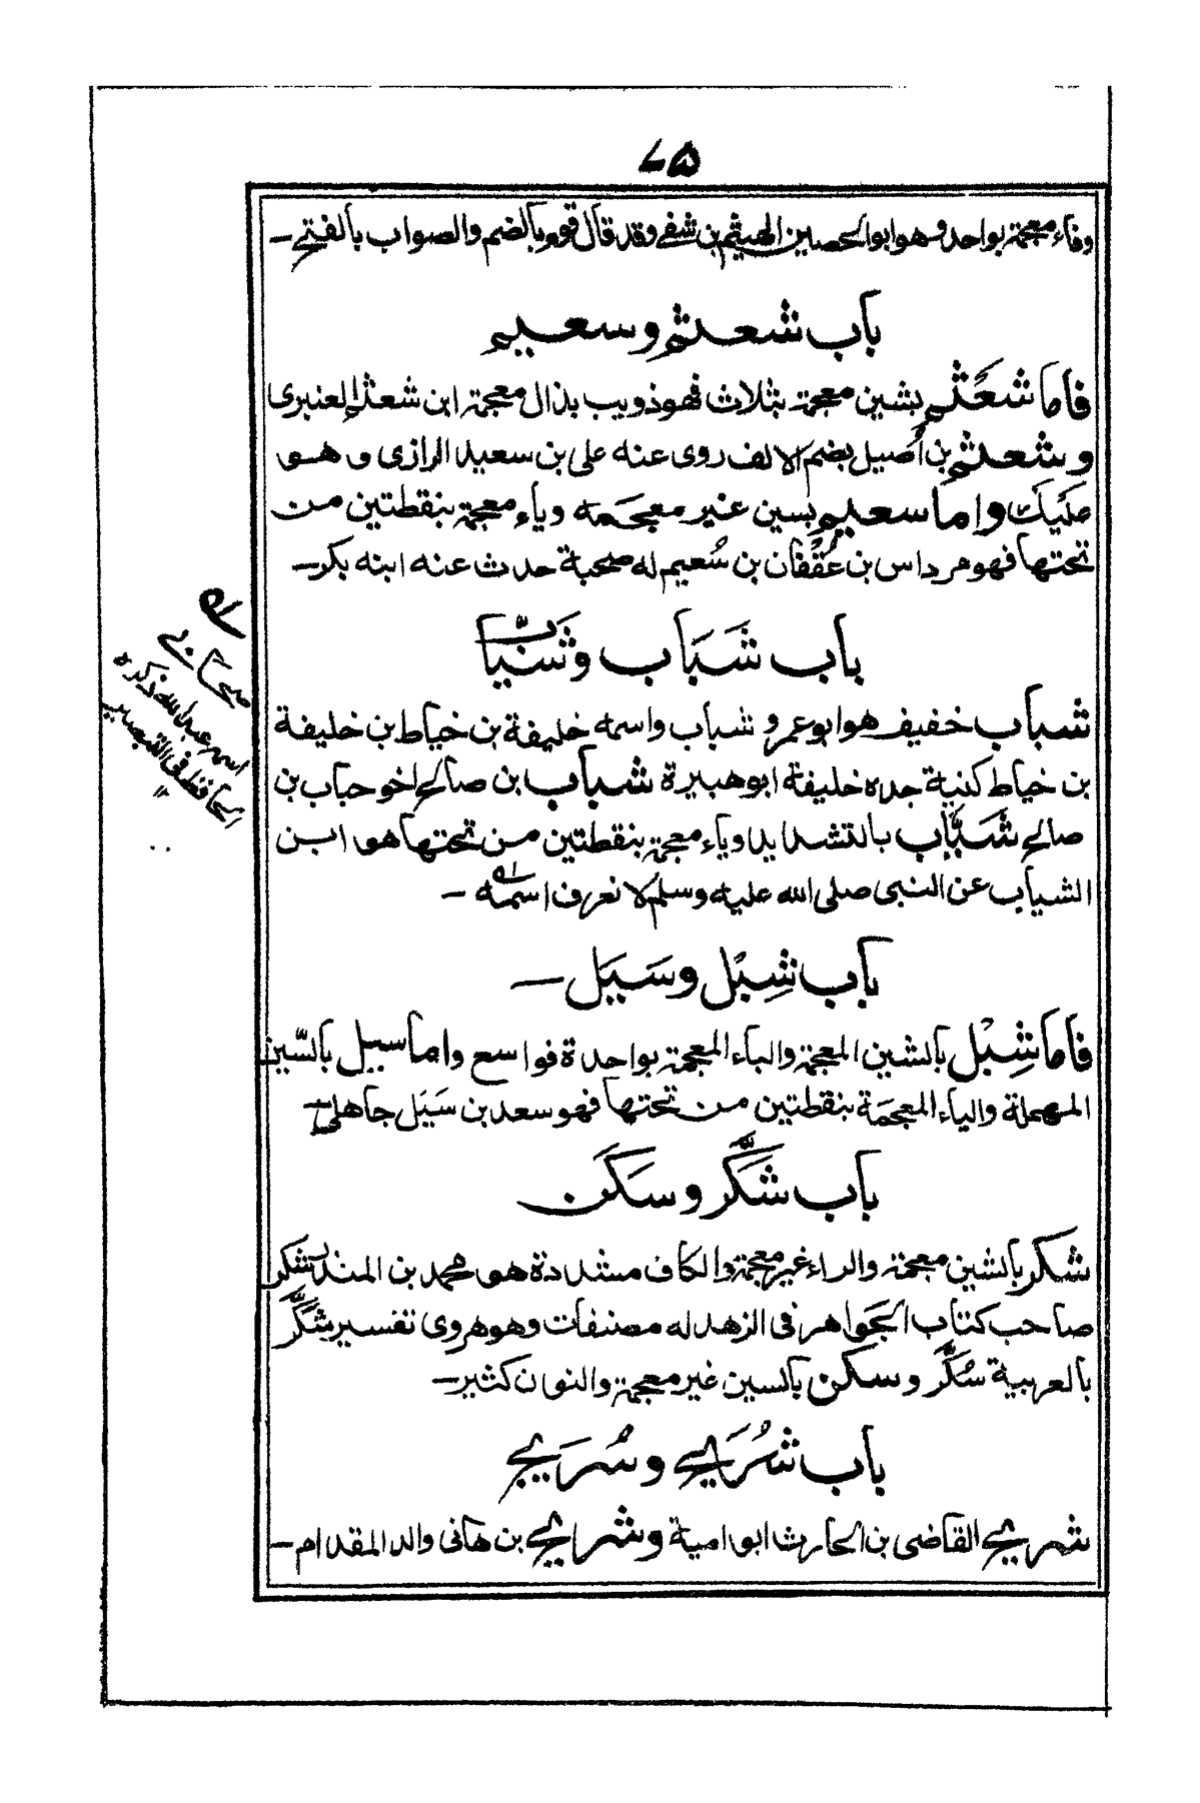 ٧٥
وفاء معجمة بواحد وهو ابو الحصين الهيثم بن شفي وقد قال قوم بالضم والصواب بالفتح -
باب شعثم وسعيم
فاما شعثم بشين معجمة بثلاث فهو ذويب بذال معجمة ابن شعثم العنبرى
وشعثم بن أصيل بضم الالف روى عنه على بن سعيد الرازى وهو
عَلِيَّك واما سعيم بسين غير معجمه وياء معجمة بنقطتين من
تحتها فهو مرداس بن عُقفان بن سُعيم له صحبة حدث عنه ابنه بكر -
باب شَبَاب وشَيَّاب
شباب خفيف هو ابو عمرو شباب واسمه خليفة بن خياط بن خليفة
بن خياط كنية جده خليفة ابو هبيرة شباب بن صالح اخو حباب بن
صالح شَيَّاب بالتشديد وياء معجمة بنقطتين من تحتها هو ابن
الشياب عن النبى صلى الله عليه وسلم لا نعرف اسمه -
باب شِبْل وسَيَل -
فاما شِبْل بالشين المعجمة والباء المعجمة بواحدة فواسع واما سيل بالسّين
المهملة والياء المعجمة بنقطتين من تحتها فهو سعد بن سَيَل جاهلى -
باب شَكَّر وسَكَن
شكر بالشين معجمة والراء غير معجمة والكاف مشددة هو محمد بن المنذر شكر
صاحب كتاب الجواهر فى الزهد له مصنفات وهو هروى تفسير شَكَّر
بالعربية سُكَّر وسكن بالسين غير معجمة والنون كثير -
باب شُرَيح وسُرَيج
شريح القاضى بن الحارث ابو امية وشريح بن هانى والد المقدام -
صحابى
اسمه عبد الله ذكره
الحافظ فى التبصير